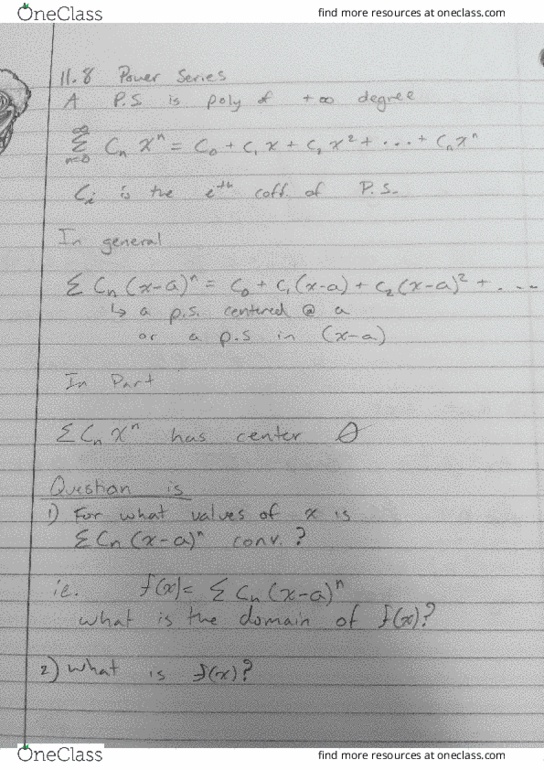 OneClass
find more resources at oneclass.com
11.8 Power Series
A P.S is poly of +∞ degree
∞
Σ Cn xⁿ = C₀ + C₁ x + C₂ x² + ... + Cn xⁿ
n=0
Ci is the eth coff. of P.S.
In general
Σ Cn (x-a)ⁿ = C₀ + C₁(x-a) + C₂(x-a)² + ...
↳ a p.s. centered @ a
or a p.s in (x-a)
In Part
Σ Cn Xⁿ has center 0
Question is
1) For what values of x is
Σ Cn (x-a)ⁿ conv. ?
ie. f(x) = Σ Cn (x-a)ⁿ
what is the domain of f(x)?
2) what is f(x)?
OneClass
find more resources at oneclass.com